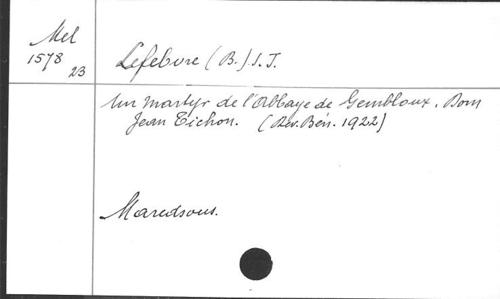 Mel
1578
23
Lefebvre (B.) S.J.
Un martyr de l'Abbaye de Gembloux. Dom
Jean Tichon. (Rev. Bén. 1922)
Maredsous.